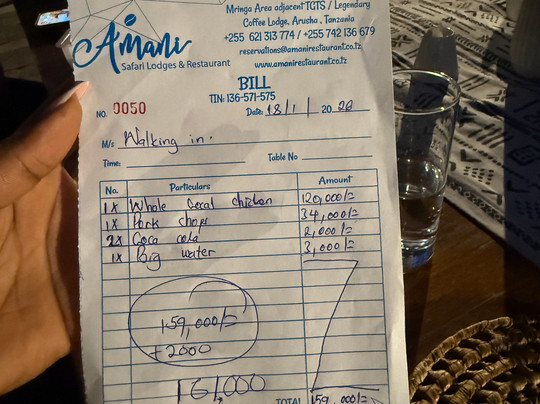 Mringa Area adjacent TGTS / Legendary
Coffee Lodge, Arusha, Tanzania
+255 621 313 774 / +255 742 136 679
reservations@amanirestaurant.co.tz
www.amanirestaurant.co.tz
Amani
Safari Lodges & Restaurant
BILL
TIN: 136-571-575
NO. 0050 Date: 18/1/2026
M/s Walking in.
Time: Table No
No. Particulars Amount
1X Whole Local chicken 120,000/=
1X Pork chops 34,000/=
2X Coca cola 2,000/=
1X Big water 3,000/=
159,000/=
+2000
161,000
TOTAL 159,000/=